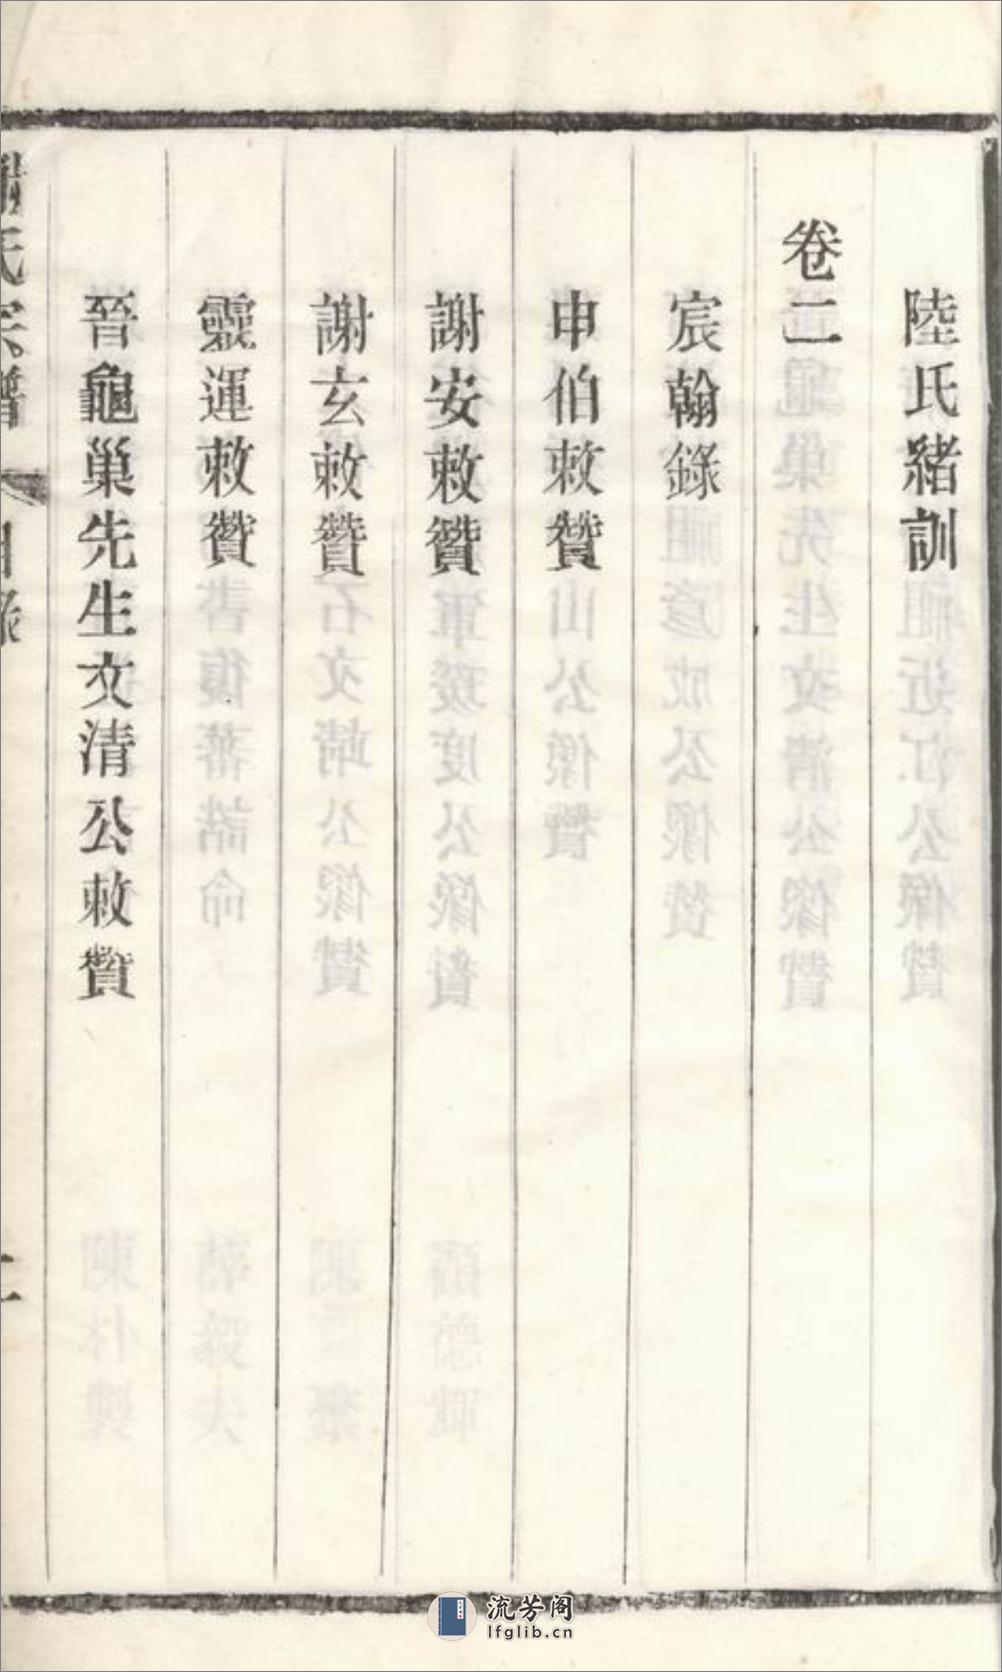 陸氏緒訓
卷二
宸翰錄
申伯敕贊
謝安敕贊
謝玄敕贊
靈運敕贊
晉龜巢先生文清公敕贊
氏宗譜
目錄
流芳阁
lfglib.cn